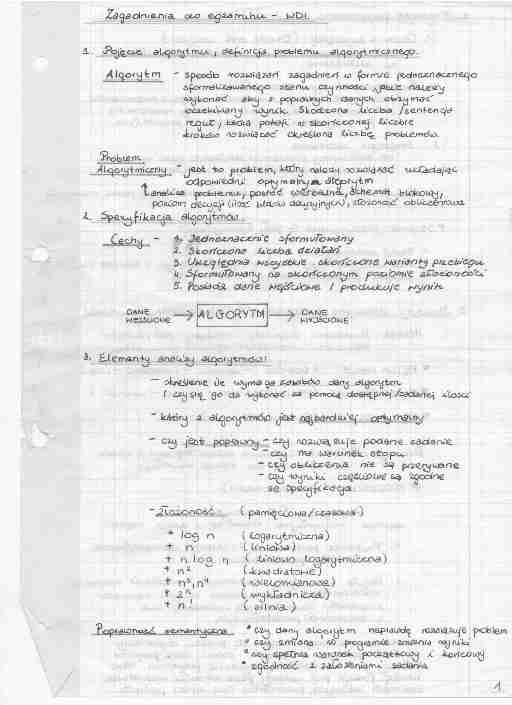 Zagadnienia do egzaminu - WDI.
1. Pojęcie algorytmu, definicja problemu algorytmicznego.
Algorytm - sposób rozwiązań zagadnień w formie jednoznacznego
sformalizowanego zbioru czynności jakie należy
wykonać aby z poprawnych danych otrzymać
oczekiwany wynik. Skończona liczba / sentencja
reguł, która potrafi w skończonej liczbie
kroków rozwiązać określoną liczbę problemów.
Problem
Algorytmiczny - jest to problem, który należy rozwiązać układając
odpowiedni optymalny algorytm
analiza problemu, postać werbalna, schemat blokowy,
poziom decyzji (ilość bloków decyzyjnych), złożoność obliczeniowa
2. Specyfikacja algorytmów.
Cechy - 1. Jednoznacznie sformułowany
2. Skończona liczba działań
3. Uwzględnia wszystkie skończone warianty przebiegu
4. Sformułowany na skończonym poziomie złożoności
5. Posiada dane wejściowe i produkuje wynik
DANE WEJŚCIOWE → ALGORYTM → DANE WYJŚCIOWE
3. Elementy analizy algorytmów:
- określenie ile wymaga zasobów dany algorytm
i czy się go da wykonać za pomocą dostępnej/zadanej ilości
- który z algorytmów jest najbardziej optymalny
- czy jest poprawny - czy rozwiązuje podane zadanie
- czy ma warunek stopu
- czy obliczenia nie są przerywane
- czy wyniki częściowe są zgodne
ze specyfikacją
- Złożoność: (pamięciowa/czasowa)
+ log n (logarytmiczna)
+ n (liniowa)
+ n log n (liniowo logarytmiczna)
+ n² (kwadratowa)
+ n³, n⁴ (wielomianowa)
+ 2ⁿ (wykładnicza)
+ n! (silnia)
Poprawność semantyczna * czy dany algorytm naprawdę rozwiązuje problem
* czy zmiana w programie zmienia wyniki
* czy spełnia warunek początkowy i końcowy
* zgodność z założeniami zadania
1